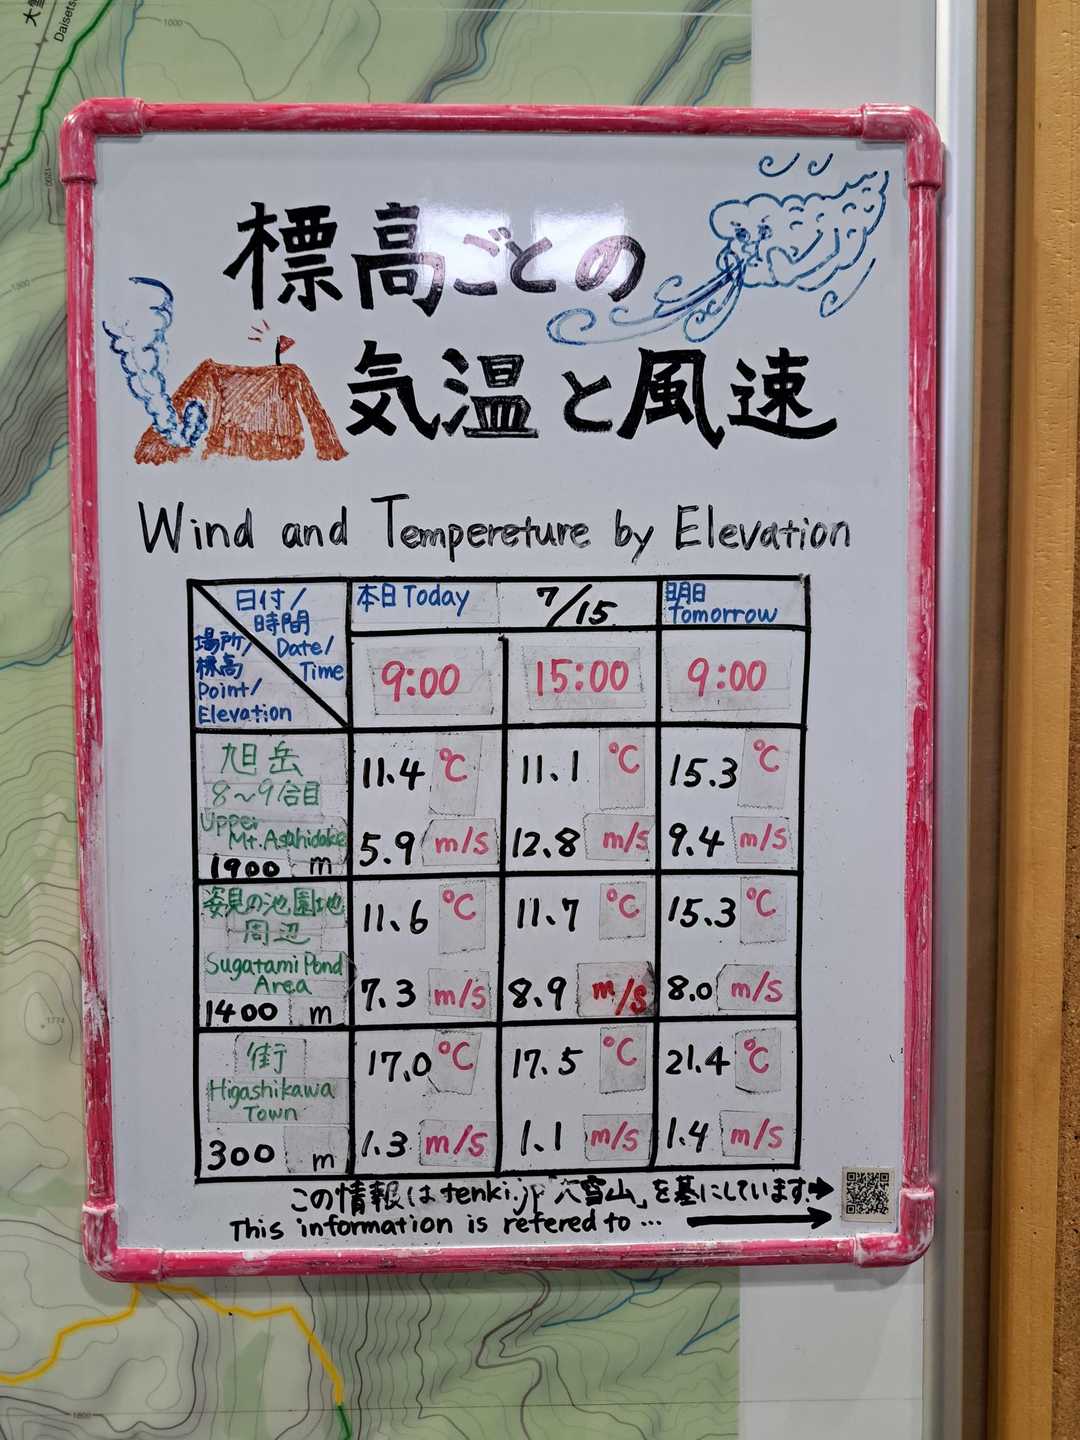 大雪
Daisets
1000
1200
1300
標高ごとの
気温と風速
Wind and Tempereture by Elevation
日付/
時間
Date/
Time
場所/
標高
Point/
Elevation
本日 Today
7/15
明日
Tomorrow
9:00
15:00
9:00
旭岳
8～9合目
Upper
Mt. Asahidake
1900 m
11.4 ℃
11.1 ℃
15.3 ℃
5.9 m/s
12.8 m/s
9.4 m/s
姿見の池園地
周辺
Sugatami Pond
Area
1400 m
11.6 ℃
11.7 ℃
15.3 ℃
7.3 m/s
8.9 m/s
8.0 m/s
街
Higashikawa
Town
300 m
17.0 ℃
17.5 ℃
21.4 ℃
1.3 m/s
1.1 m/s
1.4 m/s
この情報はtenki.jp「大雪山」を基にしています。
This information is refered to ...
1774
1800